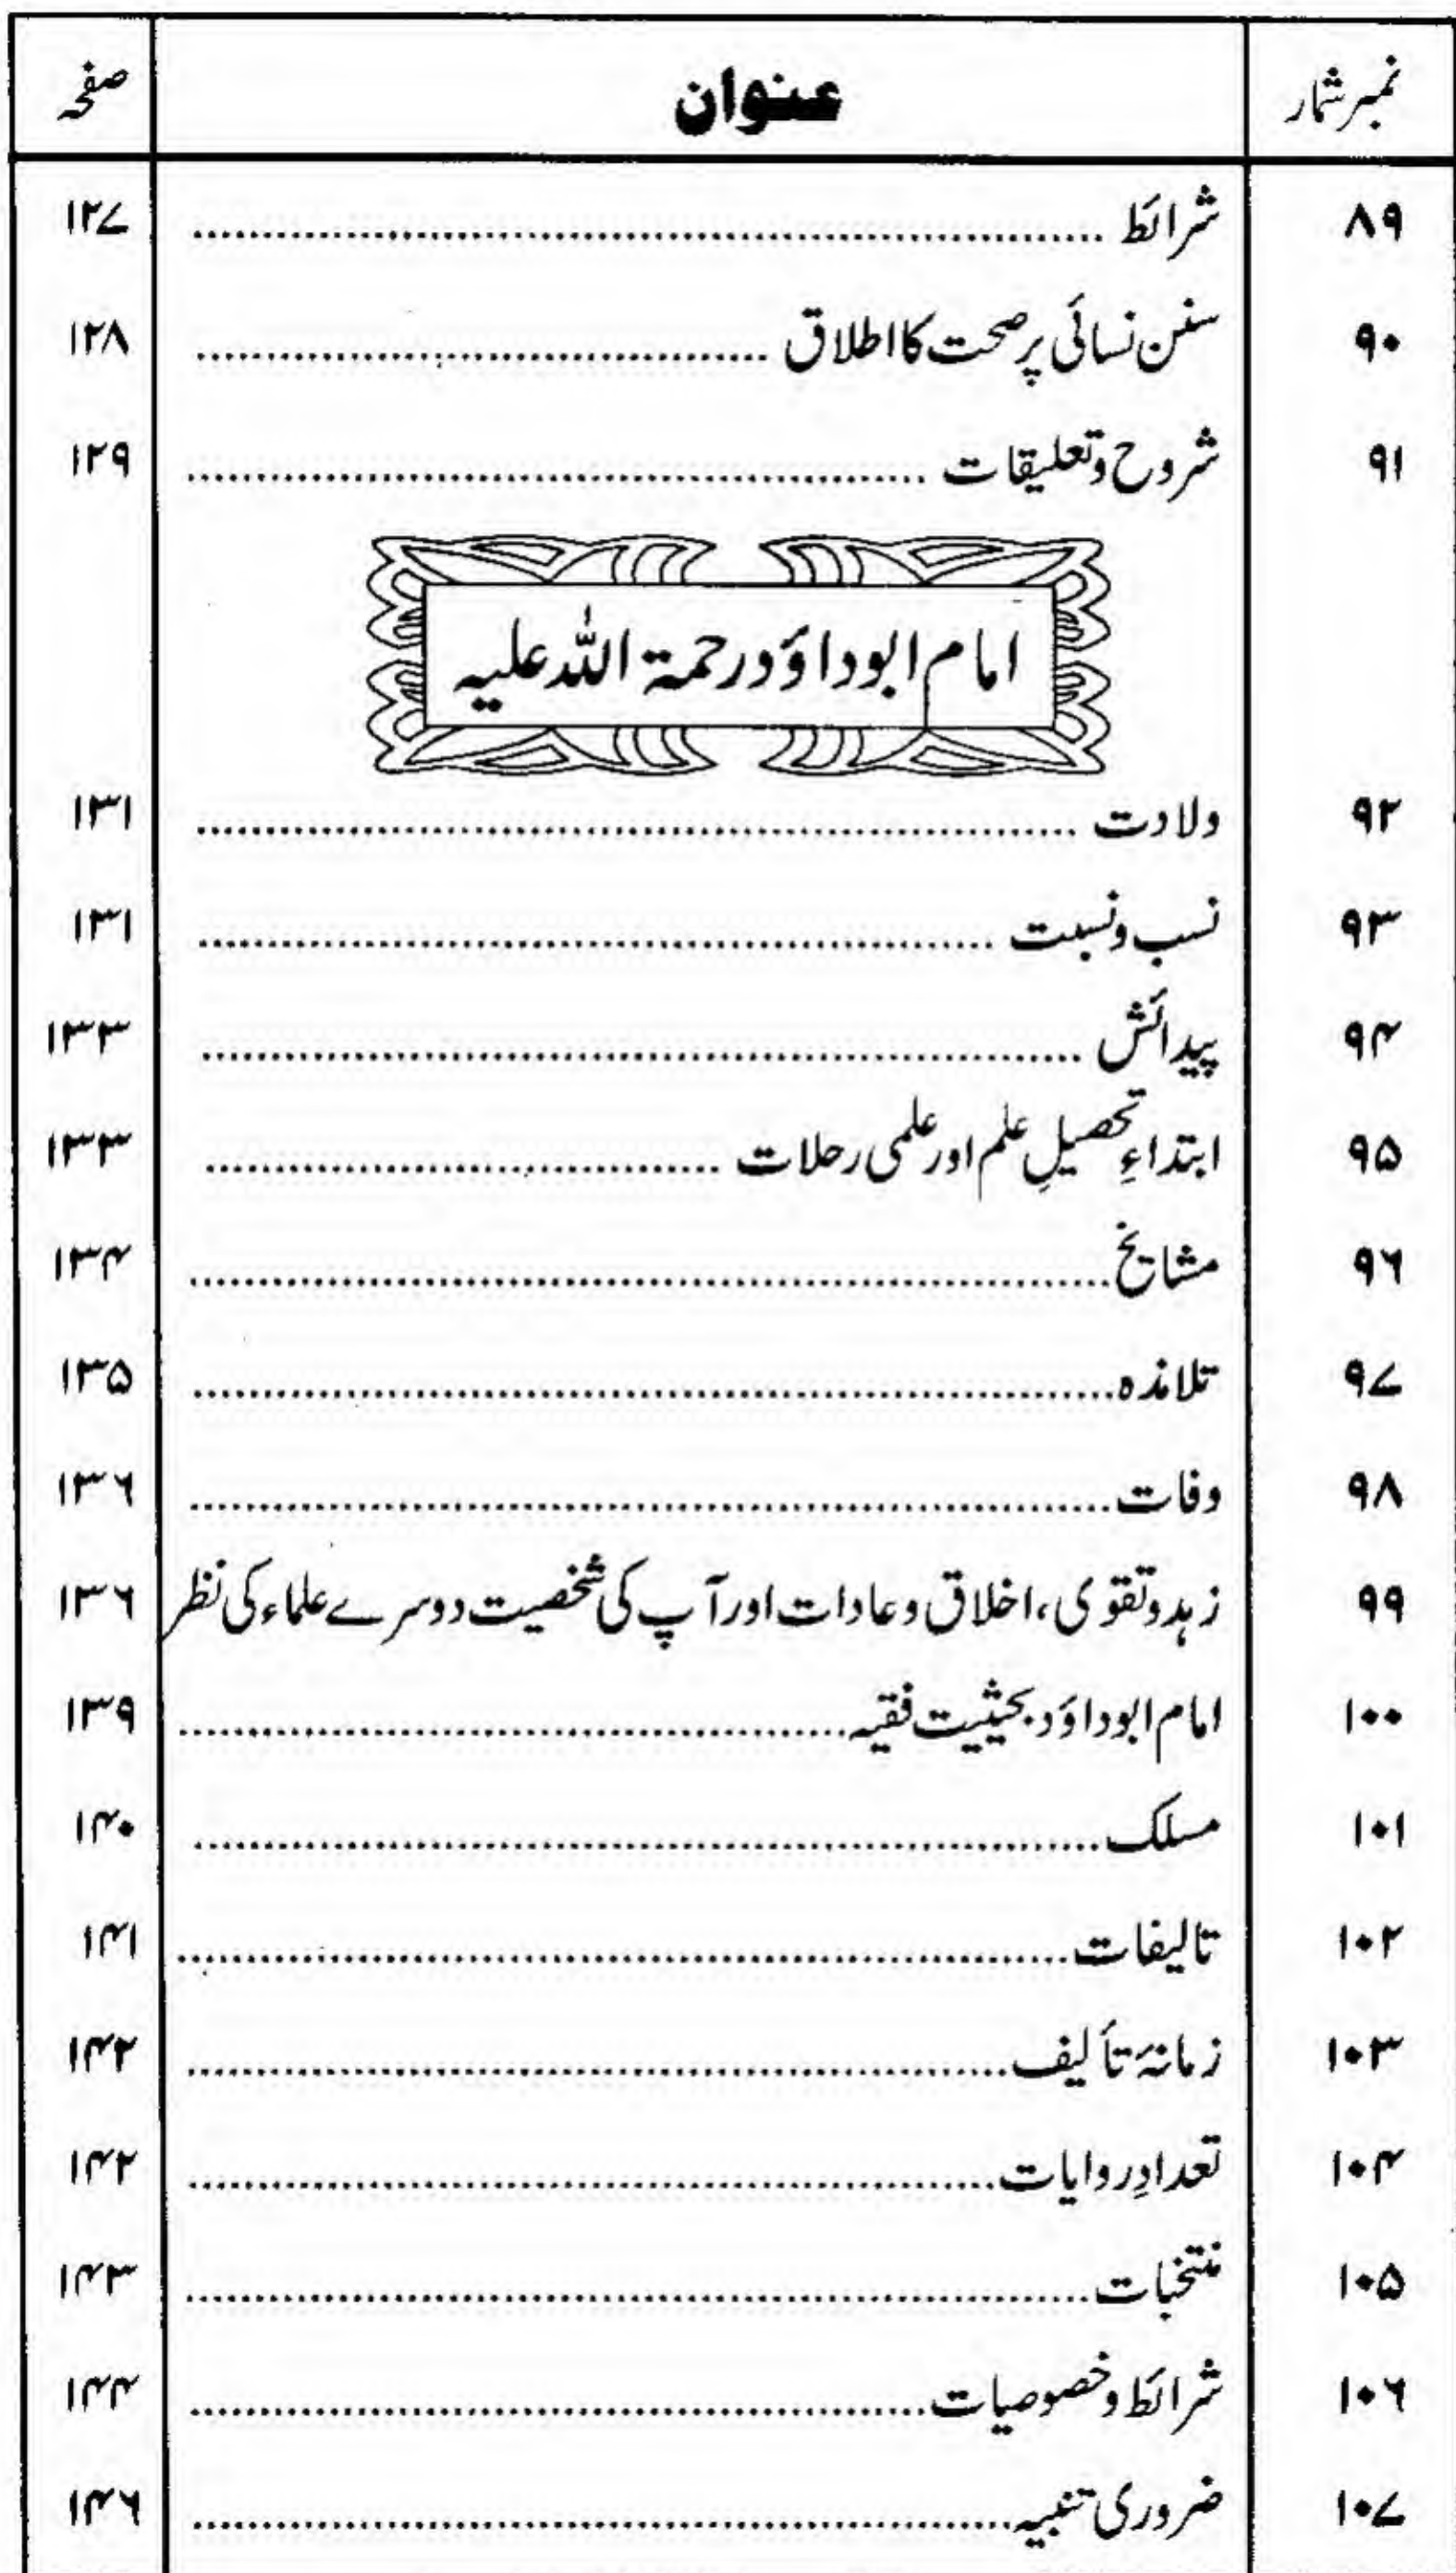 نمبر شمار عنوان صفحہ
۸۹ شرائط ۱۲۷
۹۰ سنن نسائی پر صحت کا اطلاق ۱۲۸
۹۱ شروح و تعلیقات ۱۲۹
امام ابو داؤد رحمۃ اللہ علیہ
۹۲ ولادت ۱۳۱
۹۳ نسب و نسبت ۱۳۱
۹۴ پیدائش ۱۳۳
۹۵ ابتداءِ تحصیلِ علم اور علمی رحلات ۱۳۳
۹۶ مشایخ ۱۳۴
۹۷ تلامذہ ۱۳۵
۹۸ وفات ۱۳۶
۹۹ زہد و تقوی، اخلاق و عادات اور آپ کی شخصیت دوسرے علماء کی نظر ۱۳۶
۱۰۰ امام ابو داؤد بحیثیت فقیہ ۱۳۹
۱۰۱ مسلک ۱۴۰
۱۰۲ تالیفات ۱۴۱
۱۰۳ زمانۂ تألیف ۱۴۲
۱۰۴ تعدادِ روایات ۱۴۲
۱۰۵ منتخبات ۱۴۳
۱۰۶ شرائط و خصوصیات ۱۴۴
۱۰۷ ضروری تنبیہ ۱۴۶